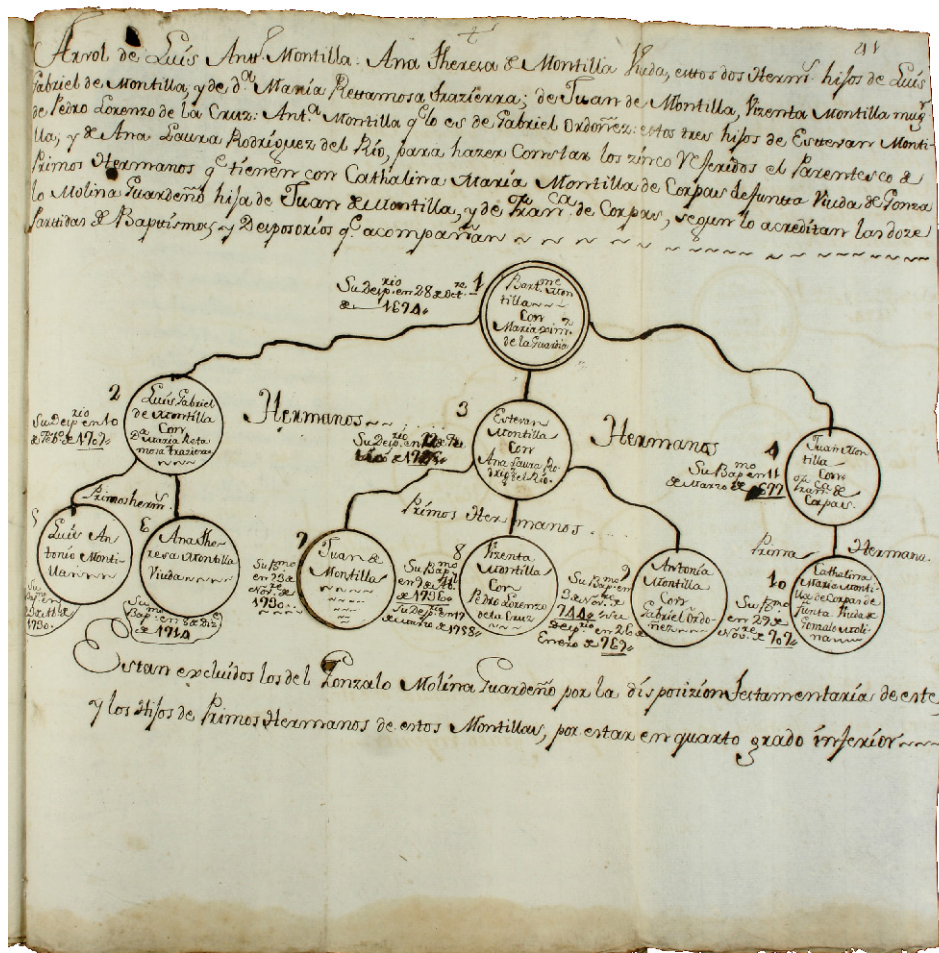 Arvol de Luís Antt.º Montilla: Ana Theresa de Montilla Viuda, estos dos Herm.s hijos de Luís
Gabriel de Montilla, y de d.ª María Rettamosa frazierra; de Juan de Montilla, Vizenta Montilla mug.r
de Pedro Lorenzo de la Cruz: Ant.ª Montilla q.e lo es de Gabriel Ordoñez: estos tres hijos de Estevan Monti-
lla, y de Ana Laura Rodríguez del Río, para hazer Constar los zinco Referidos el Parentesco de
Primos Hermanos q.e tienen con Cathalina María Montilla de Corpas defunta Viuda de Gonza
lo Molina Guardeño hija de Juan de Montilla, y de Fran.ca de Corpas, segun lo acreditan las doze
Partidas de Baptismos, y Desposorios q.e acompañan
1
Su Desp.rio en 28 de Oct.re
de 1674.
Bart.me Mon
tilla
Con
Maria
de la Guardia
2
Su Desp.rio en 10
de Feb.o de 1707.
Luís Gabriel
de Montilla
Con
D.ª Maria Reta
mosa fraziera
Hermanos
3
Su Desp.rio en
Estevan
Montilla
Con
Ana Laura Ro-
driq.z del Río.
Hermanos
4
Su Bap.mo en 11
de Marzo de 1677
Juan Mon
tilla
Con
Fran.ca de
Corpas.
Primos herm.s
Primos Hermanos
Prima Hermana
5
Luís An
tonio Monti-
lla
1730.
6
Ana The-
resa Montilla
Viuda
Su Bap.mo en 8 de Diz.e
de 1710
7
Juan de
Montilla
Su B.mo
en 23 de
Nov.re de
1730
8
Vizenta
Montilla
Con
Pedro Lorenzo
de la Cruz
Su Bap.mo
en 9 de
de 1736
Su Desp.rio en 17
de Marzo de 1758
9
Antonia
Montilla
Con
Gabriel Ordo-
ñez
Su Bap.mo en
3 de Nov.re de
744 y su
Desp.rio en 26 de
Enero de 767
10
Cathalina
Maria Monti-
lla de Corpas de
funta Viuda de
Gonzalo Moli-
na
Su B.mo
en 29 de
Nov.re de 707
Estan excluidos los del Gonzalo Molina Guardeño por la disposizion testamentaria de este,
y los Hijos de Primos Hermanos de estos Montillas, por estar en quarto grado inferior